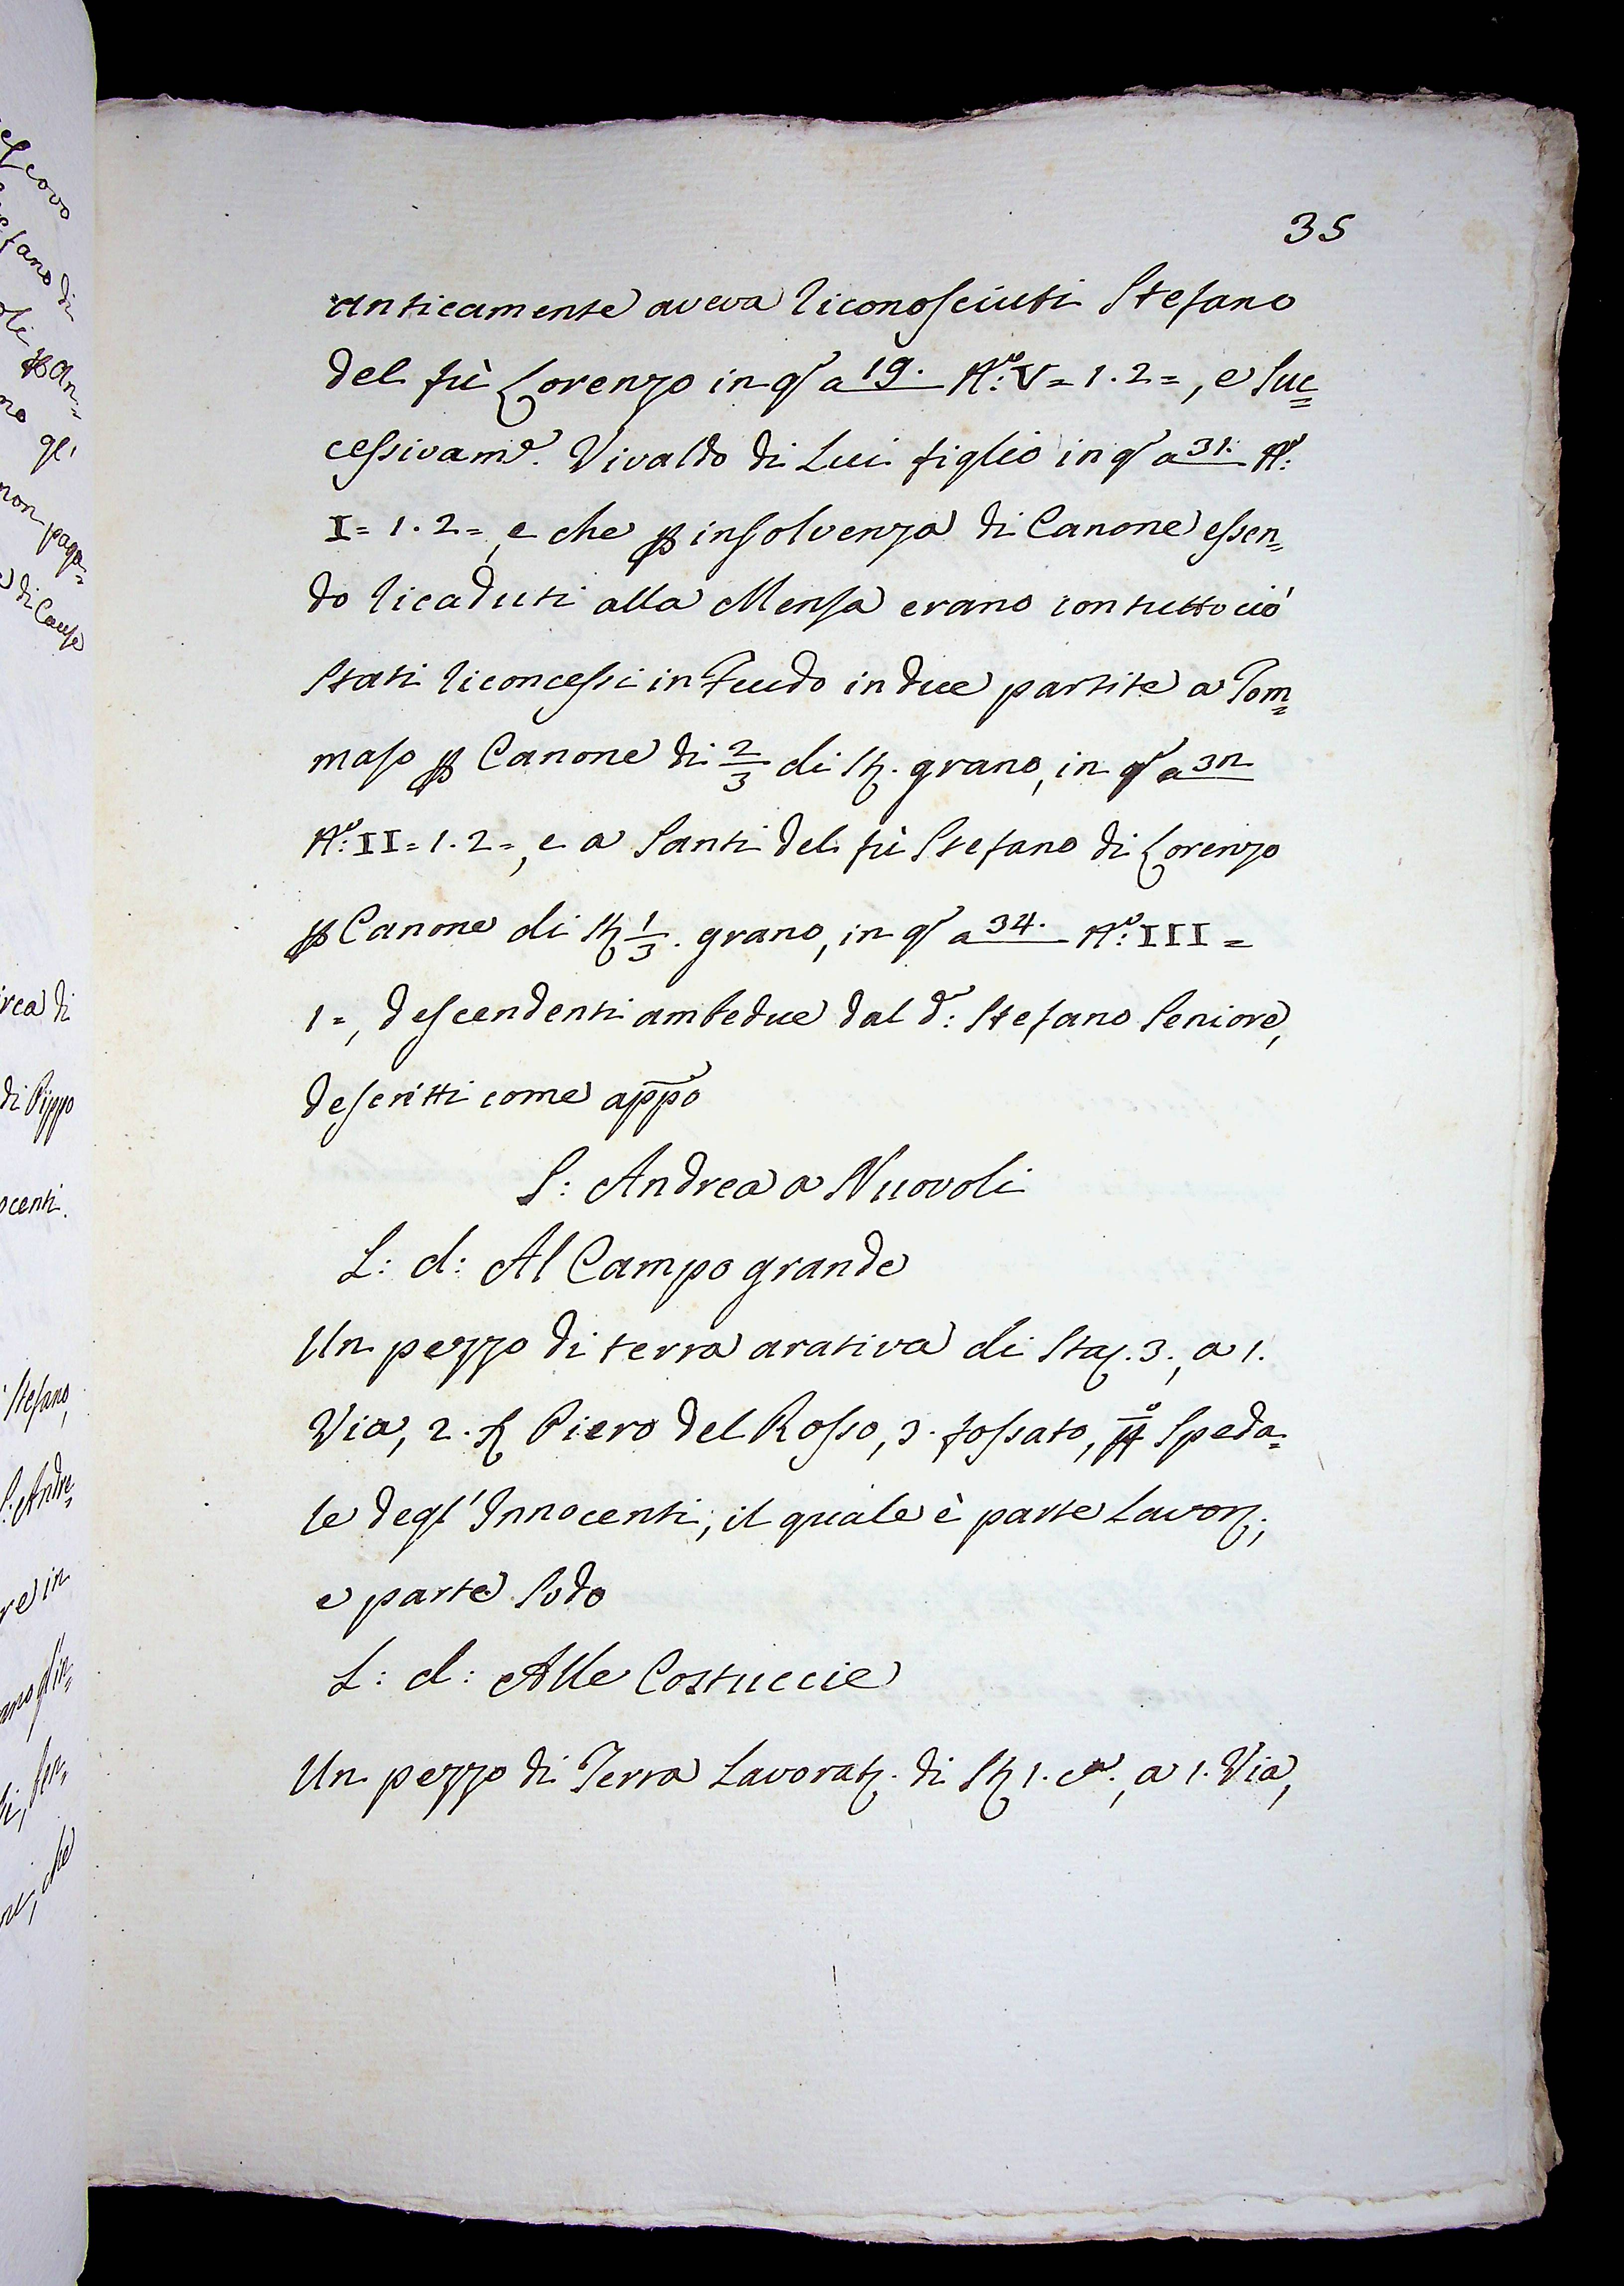 35
anticamente aveva riconosciuti Stefano
del fù Lorenzo in qto a 19. No: V = 1. 2 =, e suc=
cessivamte. Vivaldo di Lui figlio in qto a 31. No:
I = 1. 2 =, e che p insolvenza di Canone essen=
do ricaduti alla Mensa erano contuttociò
stati riconcessi in Feudo in due partite a Tom=
maso p Canone di 2/3 di St. grano, in qto a 32
No: II = 1. 2 =, e a Santi del fù Stefano di Lorenzo
p Canone di St 1/3. grano, in qto a 34. No: III =
1 =, descendenti ambedue dal do: Stefano Seniore,
descritti come appo
S: Andrea a Nuovoli
L: d: Al Campo grande
Un pezzo di terra arativa di Sta. 3., a 1.
Via, 2. Piero del Rosso, 3. fossato, 4o Speda=
le degl' Innocenti, il quale è parte Lavor.;
e parte sodo
L: d: Alle Costuccie
Un pezzo di Terra Lavorat. di St 1. ca., a 1. Via,
escovo
efano di
oli
p an=
no gl'
non paga=
di Cause
rea di
di Pippo
ocenti.
Stefano,
S: Andre=
re in
che